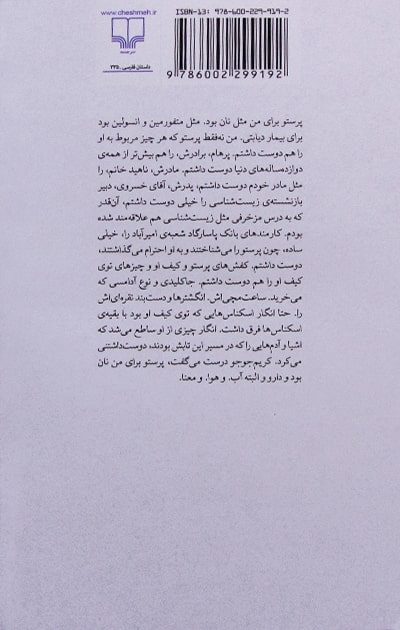 www.cheshmeh.ir
نشرچشمه
داستان فارسی . ۲۳۵
ISBN-13: 978-600-229-919-2
9 786002 299192
پرستو برای من مثل نان بود. مثل متفورمین و انسولین بود
برای بیمار دیابتی. من نه‌فقط پرستو که هر چیز مربوط به او
را هم دوست داشتم. پرهام، برادرش، را هم بیش‌تر از همه‌ی
دوازده‌ساله‌های دنیا دوست داشتم. مادرش، ناهید خانم، را
مثل مادر خودم دوست داشتم، پدرش، آقای خسروی، دبیر
بازنشسته‌ی زیست‌شناسی را خیلی دوست داشتم، آن‌قدر
که به درس مزخرفی مثل زیست‌شناسی هم علاقه‌مند شده
بودم. کارمندهای بانک پاسارگاد شعبه‌ی امیرآباد را، خیلی
ساده، چون پرستو را می‌شناختند و به او احترام می‌گذاشتند،
دوست داشتم. کفش‌های پرستو و کیف او و چیزهای توی
کیف او را هم دوست داشتم. جاکلیدی و نوع آدامسی که
می‌خرید. ساعت‌مچی‌اش. انگشترها و دست‌بند نقره‌ای‌اش
را. حتا انگار اسکناس‌هایی که توی کیف او بود با بقیه‌ی
اسکناس‌ها فرق داشت. انگار چیزی از او ساطع می‌شد که
اشیا و آدم‌هایی را که در مسیر این تابش بودند، دوست‌داشتنی
می‌کرد. کریم‌جوجو درست می‌گفت، پرستو برای من نان
بود و دارو و البته آب. و هوا. و معنا.